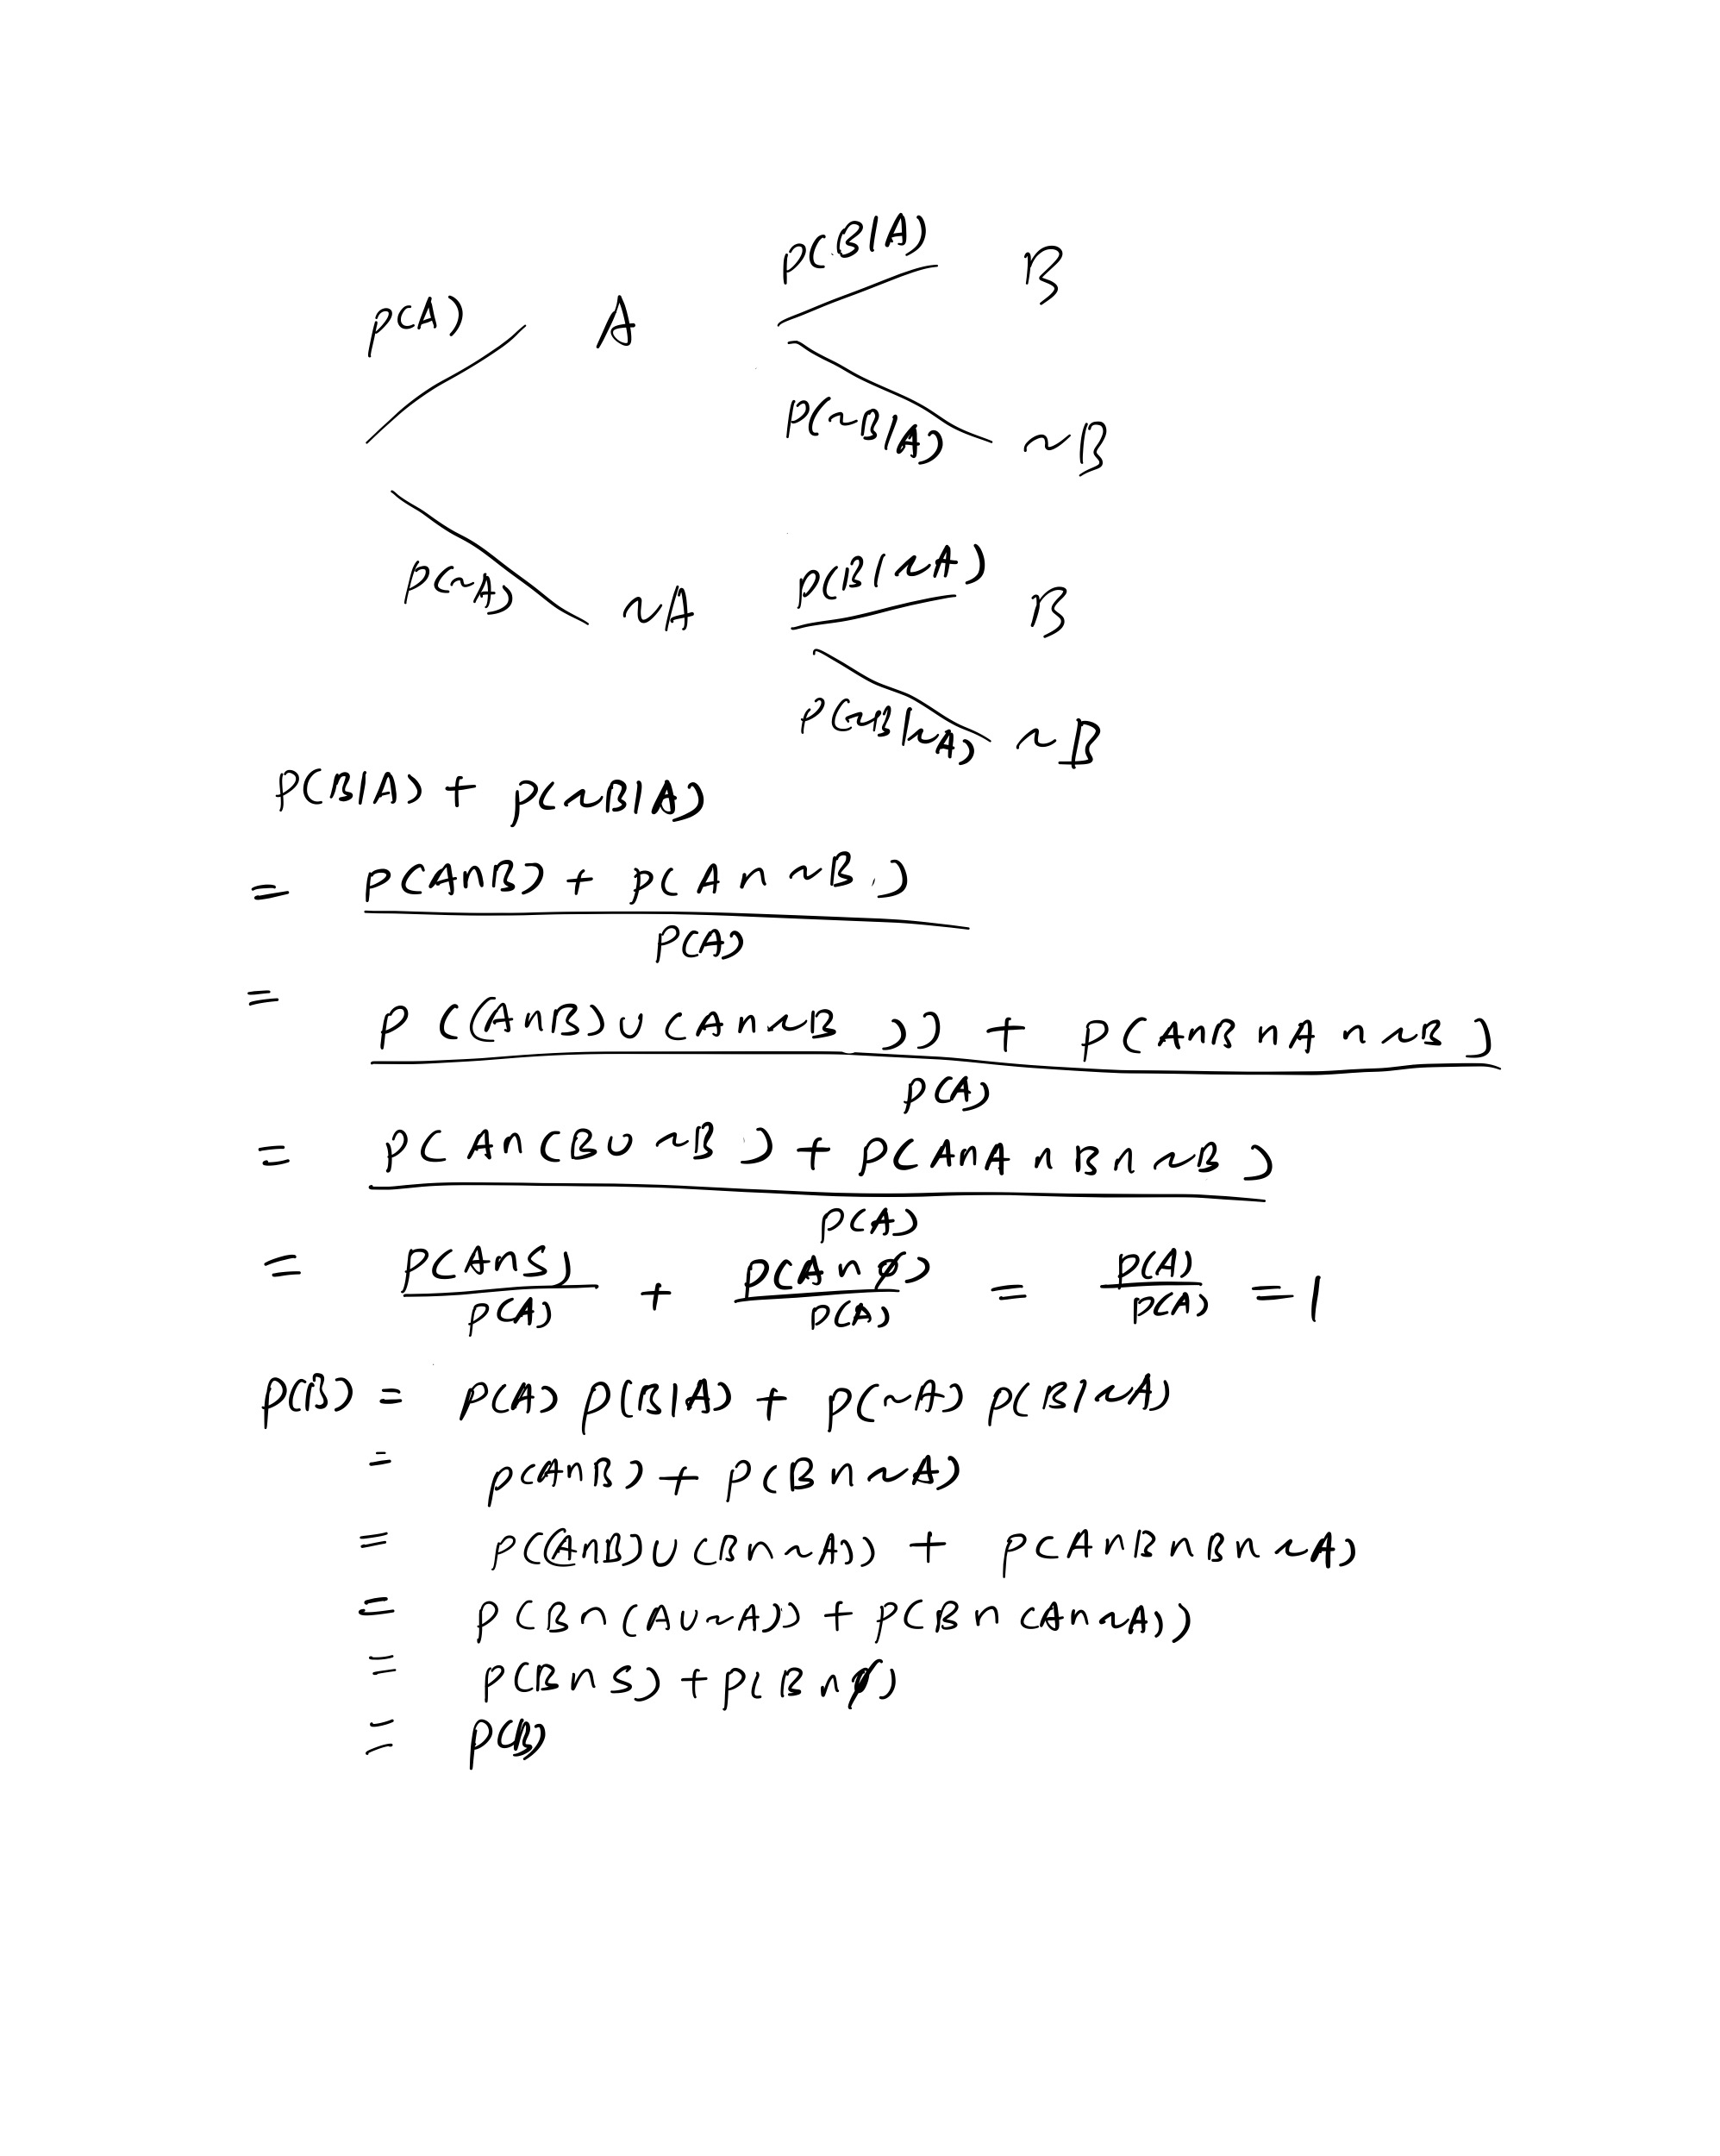 P(B|A) B
P(A) A
P(~B|A) ~B
P(~A) ~A P(B|~A) B
P(~B|~A) ~B
P(B|A) + P(~B|A)
= P(A∩B) + P(A∩~B)
P(A)
= P((A∩B)∪(A∩~B)) + P(A∩B∩A∩~B)
P(A)
= P(A∩(B∪~B) + P(A∩A∩B∩~B)
P(A)
= P(A∩S) + P(A∩∅) = P(A) = 1
P(A) P(A) P(A)
P(B) = P(A) P(B|A) + P(~A) P(B|~A)
= P(A∩B) + P(B∩~A)
= P((A∩B)∪(B∩~A)) + P(A∩B∩B∩~A)
= P(B∩(A∪~A)) + P(B∩(A∩~A))
= P(B∩S) + P(B∩∅)
= P(B)